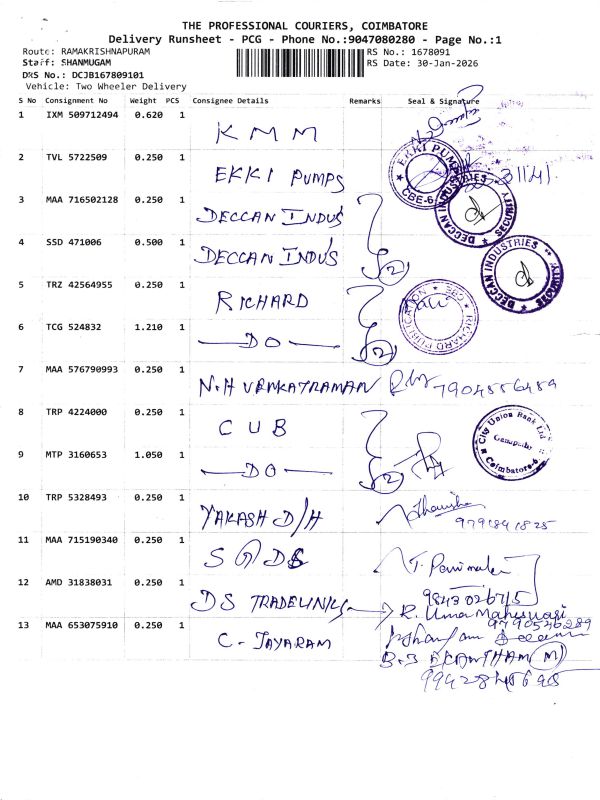 THE PROFESSIONAL COURIERS, COIMBATORE
Delivery Runsheet - PCG - Phone No.:9047080280 - Page No.:1
Route: RAMAKRISHNAPURAM
RS No.: 1678091
Staff: SHANMUGAM
RS Date: 30-Jan-2026
DRS No.: DCJB167809101
Vehicle: Two Wheeler Delivery
S No Consignment No Weight PCS Consignee Details Remarks Seal & Signature
1 IXM 509712494 0.620 1 KMM
2 TVL 5722509 0.250 1 EKKI PUMPS
EKKI PUMPS CBE-6
3 MAA 716502128 0.250 1 DECCAN INDUS
DECCAN INDUSTRIES SECURITY
4 SSD 471006 0.500 1 DECCAN INDUS 2
DECCAN INDUSTRIES
5 TRZ 42564955 0.250 1 RICHARD
RICHARD PUBLICATION CBE
6 TCG 524832 1.210 1 DO 2
7 MAA 576790993 0.250 1 N.H VENKATRAMAN 7904556489
8 TRP 4224000 0.250 1 CUB
City Union Bank Ltd Ganapathy Coimbatore-6
9 MTP 3160653 1.050 1 DO 2
10 TRP 5328493 0.250 1 YAKASH D/H
9791841825
11 MAA 715190340 0.250 1
9843026715
12 AMD 31838031 0.250 1 DS TRADELINKS R. Uma Maheswari
9790536289
13 MAA 653075910 0.250 1 C. JAYARAM